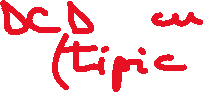 DCD cu
(tipic